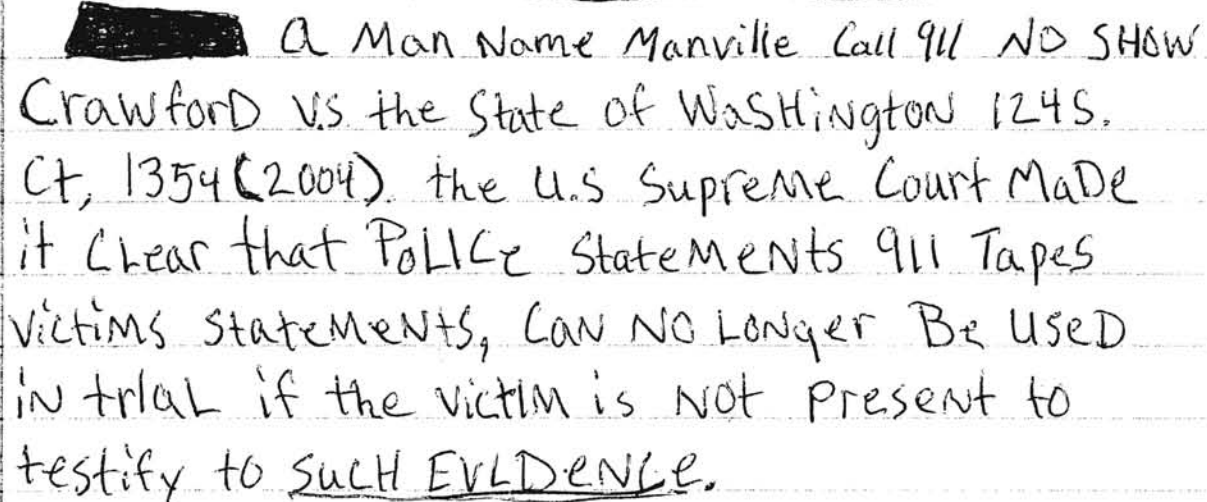 a Man Name Manville Call 911 NO SHOW
CrawforD V.S. the State of WaSHiNgtoN 124 S.
Ct, 1354 (2004). the U.S Supreme Court MaDe
it CLear that PoLICe StateMeNts 911 Tapes
VictiMs StateMeNtS, CaN NO LONger Be USeD
iN triaL if the victiM is Not present to
testify to SucH EVIDeNCe.